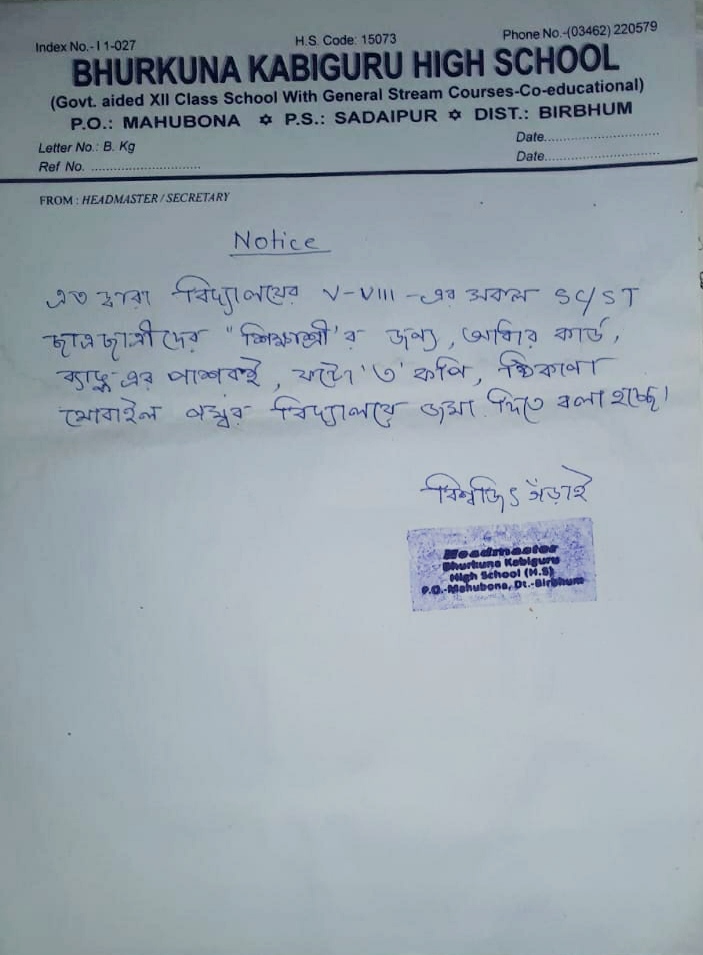 Index No.-I 1-027 H.S. Code: 15073 Phone No.-(03462) 220579
BHURKUNA KABIGURU HIGH SCHOOL
(Govt. aided XII Class School With General Stream Courses-Co-educational)
P.O.: MAHUBONA ✡ P.S.: SADAIPUR ✡ DIST.: BIRBHUM
Letter No.: B. Kg Date..............................
Ref No. ............................ Date..............................
FROM : HEADMASTER / SECRETARY
Notice
এত দ্বারা বিদ্যালয়ের V-VIII -এর সকল SC/ST
ছাত্রছাত্রীদের "শিক্ষাশ্রী'র জন্য, আধার কার্ড,
ব্যাঙ্ক এর পাশবই, ফটো '৩' কপি, ঠিকানা
মোবাইল নম্বর বিদ্যালয়ে জমা দিতে বলা হচ্ছে।
বিশ্বজিৎ গঁড়াই
Headmaster
Bhurkuna Kabiguru
High School (H.S)
P.O.-Mahubona, Dt.-Birbhum